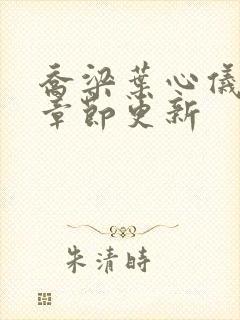 乔梁葉心儀
章節更新
朱清時